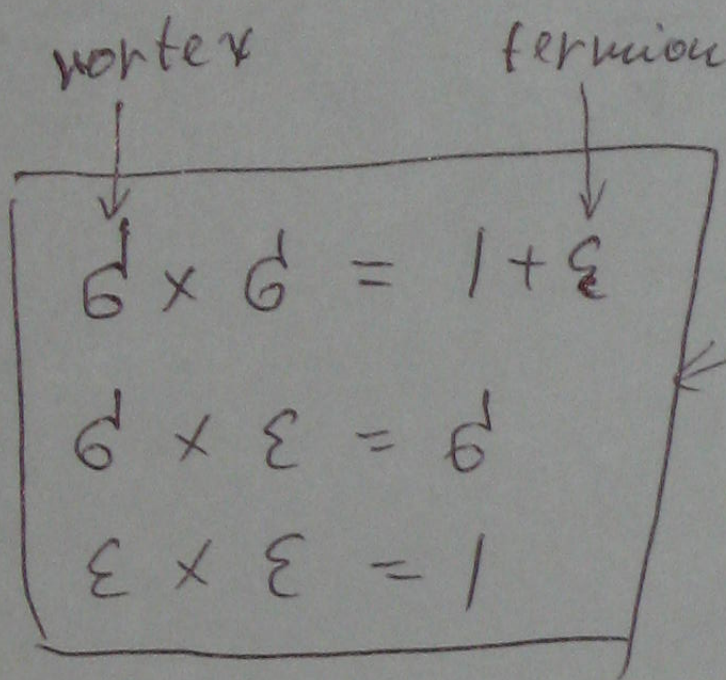 vortex fermion
σ × σ = 1 + ε
σ × ε = σ
ε × ε = 1